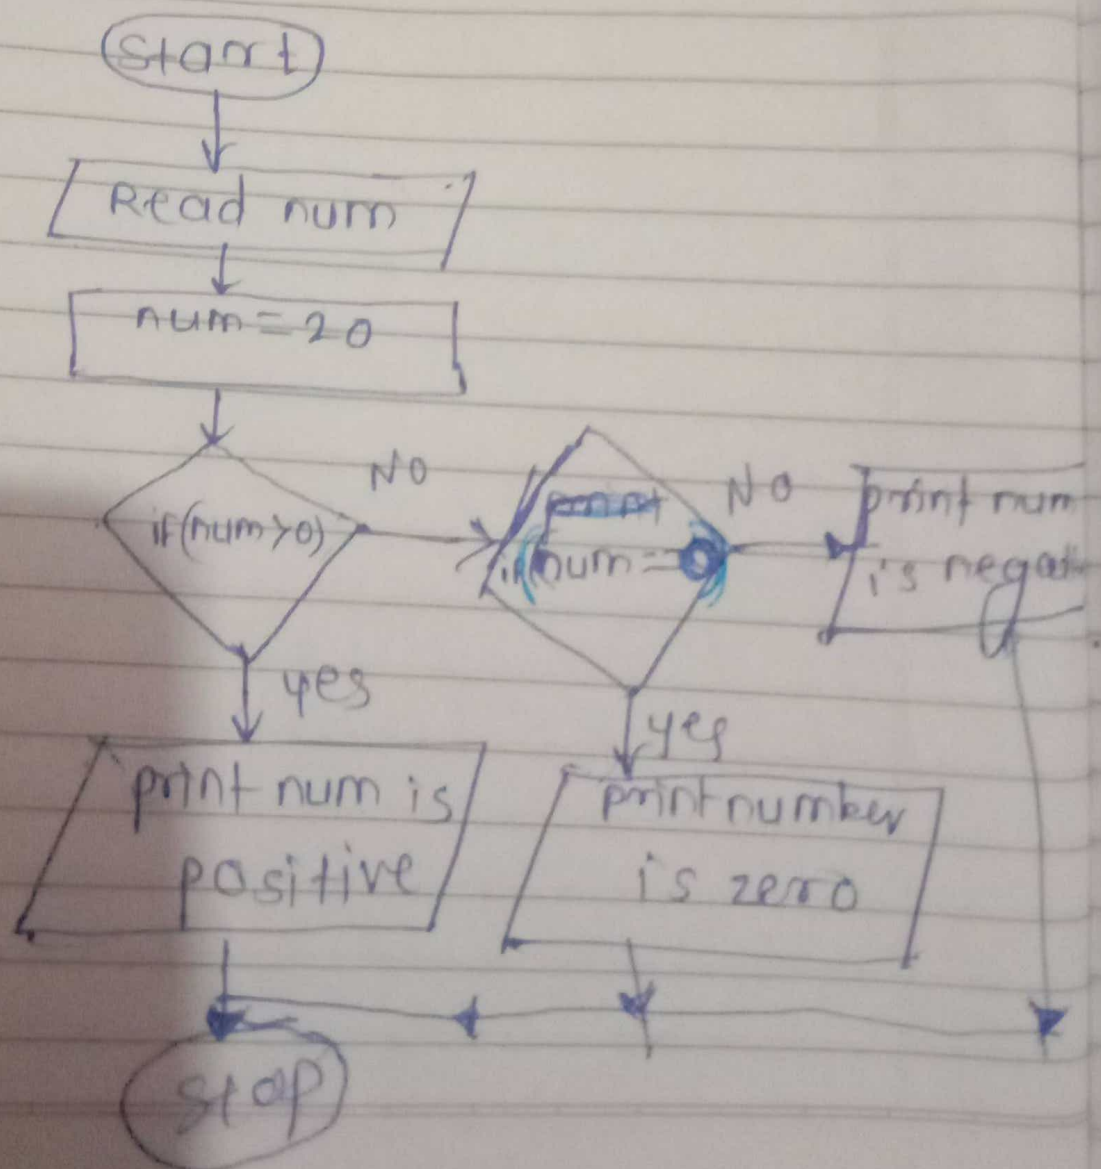 Start
Read num
num = 20
if(num>0)
NO
if(num=0)
NO
print num
is negat
yes
yes
print num is
positive
print number
is zero
stop